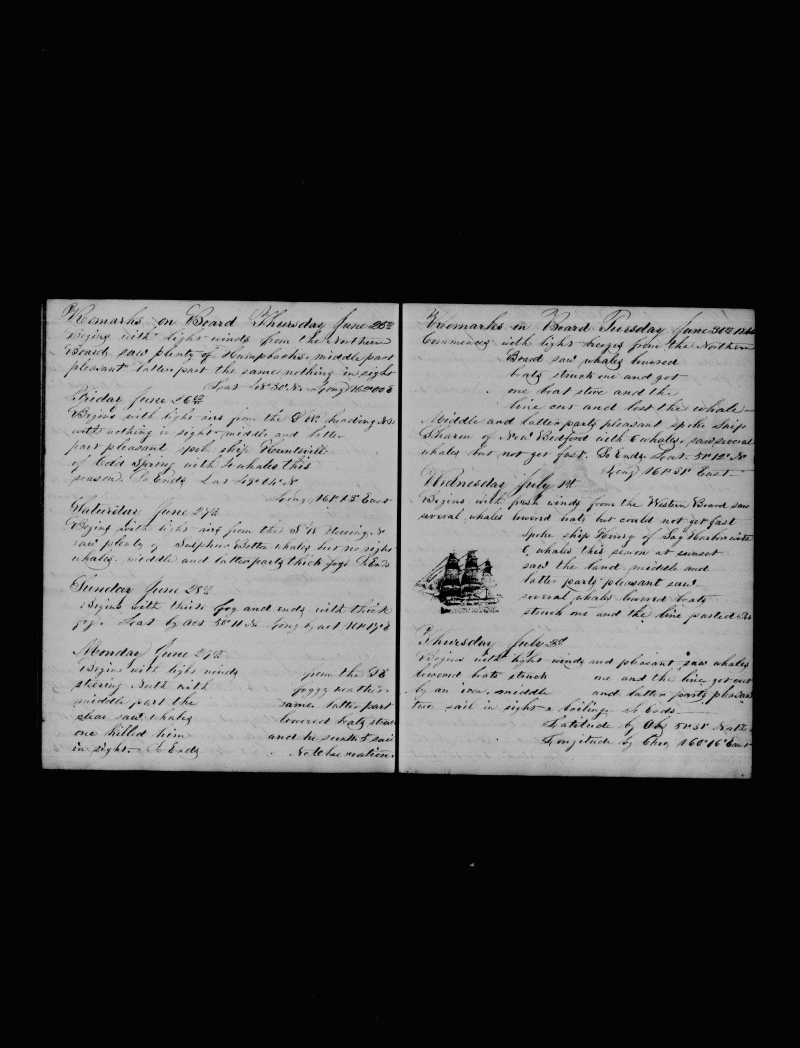 Remarks on Board Thursday June 25th
Begins with light winds from the Northern
Board saw plenty of Humpbacks middle part
pleasant latter part the same nothing in sight
Lat 48°50 N. Long 160°00 E
Friday June 26th
Begins with light airs from the S W. heading
with nothing in sight middle and latter
part pleasant spoke ship Huntsville
of Cold Spring with 4 whales this
season. So Ends Lat 48°14 N
Long 161°15 East
Saturday June 27th
Begins with light airs from the S W steering N
saw plenty of Sulphur Bottom whales but no right
whales. middle and latter parts thick fogs So Ends
Sunday June 28th
Begins with thick fog and ends with thick
fog. Lat by act 50°11 N Long by act
Monday June 29th
Begins with light winds from the
steering North with foggy weather.
middle part the same latter part
clear saw whales lowered boats struck
one killed him and he sunk 5 sail
in sight. So Ends No Observations
Remarks on Board Tuesday June 30th
Commences with light breezes from the Northern
Board saw whales lowered
boats struck one and got
one boat stove and the
line cut and lost the whale
Middle and latter parts pleasant spoke Ship
Sharon of New Bedford with 6 whales. saw several
whales but not get fast. So Ends Lat. 51°12 N
Long 161°31 East
Wednesday July 1st
Begins with fresh winds from the Western Board saw
several whales lowered boats but could not get fast
spoke ship Henry of Sag Harbor with
6 whales this season at sunset
saw the land middle and
latter parts pleasant saw
several whales lowered boats
struck one and the line parted
Thursday July 2d
Begins with light winds and pleasant saw whales
lowered boats struck one and the line got cut
by an iron. middle and latter parts pleasant
two sail in sight a boiling. So Ends
Latitude by Obs 51°31 North
Longitude by Chro 160°16 East